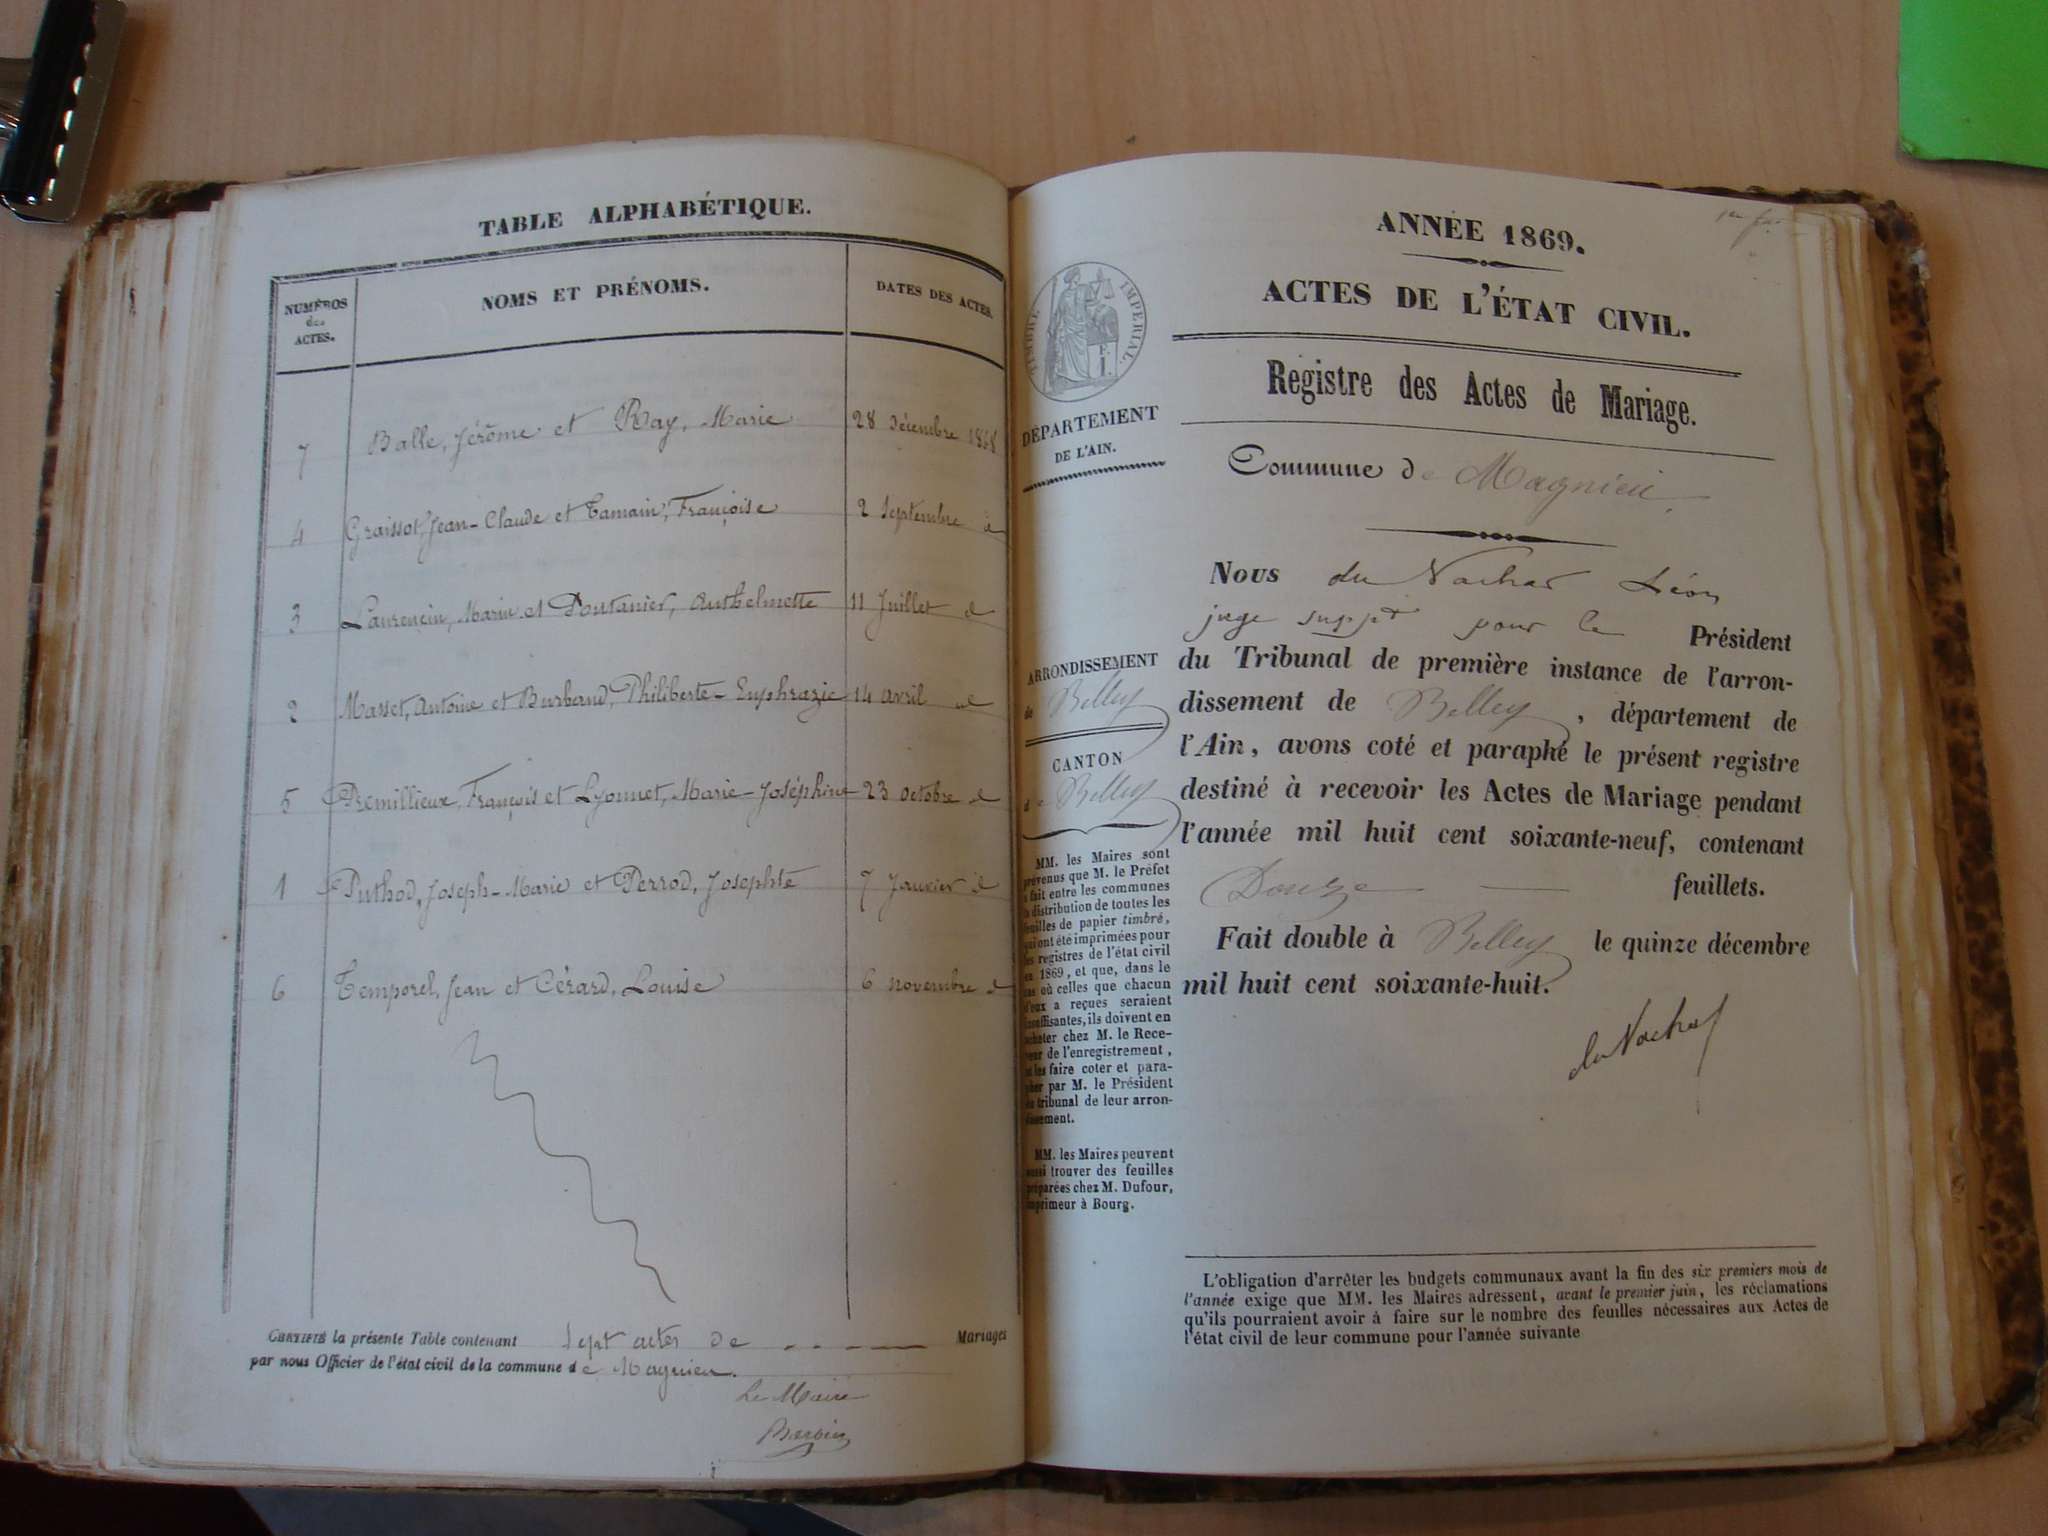 TABLE ALPHABÉTIQUE.
NUMÉROS
des
ACTES.
NOMS ET PRÉNOMS.
DATES DES ACTES.
7 Balle, Jérôme et Ray, Marie 28 décembre 1868
4 Graissot, Jean-Claude et Tamain, Françoise 2 Septembre d
3 Laurencin, Marin et Poutanier, Anthelmette 11 Juillet d
2 Masset, Antoine et Burband, Philiberte-Euphrazie 14 avril d
5 Premillieux, François et Lyonnet, Marie-Joséphine 23 octobre d
1 Puthod, Joseph-Marie et Perrod, Josephte 7 Janvier d
6 Temporel, Jean et Gérard, Louise 6 novembre d
CERTIFIÉ la présente Table contenant Sept actes de Mariages
par nous Officier de l'état civil de la commune de Magnieu.
Le Maire
ANNÉE 1869.
ACTES DE L'ÉTAT CIVIL.
Registre des Actes de Mariage.
Commune de Magnieu
TIMBRE IMPERIAL.
DÉPARTEMENT
DE L'AIN.
ARRONDISSEMENT
de Belley
CANTON
de Belley
MM. les Maires sont
prévenus que M. le Préfet
a fait entre les communes
la distribution de toutes les
feuilles de papier timbré,
qui ont été imprimées pour
les registres de l'état civil
en 1869, et que, dans le
cas où celles que chacun
d'eux a reçues seraient
insuffisantes, ils doivent en
acheter chez M. le Rece-
veur de l'enregistrement,
et les faire coter et para-
pher par M. le Président
du tribunal de leur arron-
dissement.
MM. les Maires peuvent
aussi trouver des feuilles
préparées chez M. Dufour,
imprimeur à Bourg.
Nous du Nachat Léon
juge suppt pour le Président
du Tribunal de première instance de l'arron-
dissement de Belley, département de
l'Ain, avons coté et paraphé le présent registre
destiné à recevoir les Actes de Mariage pendant
l'année mil huit cent soixante-neuf, contenant
Douze feuillets.
Fait double à Belley le quinze décembre
mil huit cent soixante-huit.
du Nachat
L'obligation d'arrêter les budgets communaux avant la fin des six premiers mois de
l'année exige que MM. les Maires adressent, avant le premier juin, les réclamations
qu'ils pourraient avoir à faire sur le nombre des feuilles nécessaires aux Actes de
l'état civil de leur commune pour l'année suivante